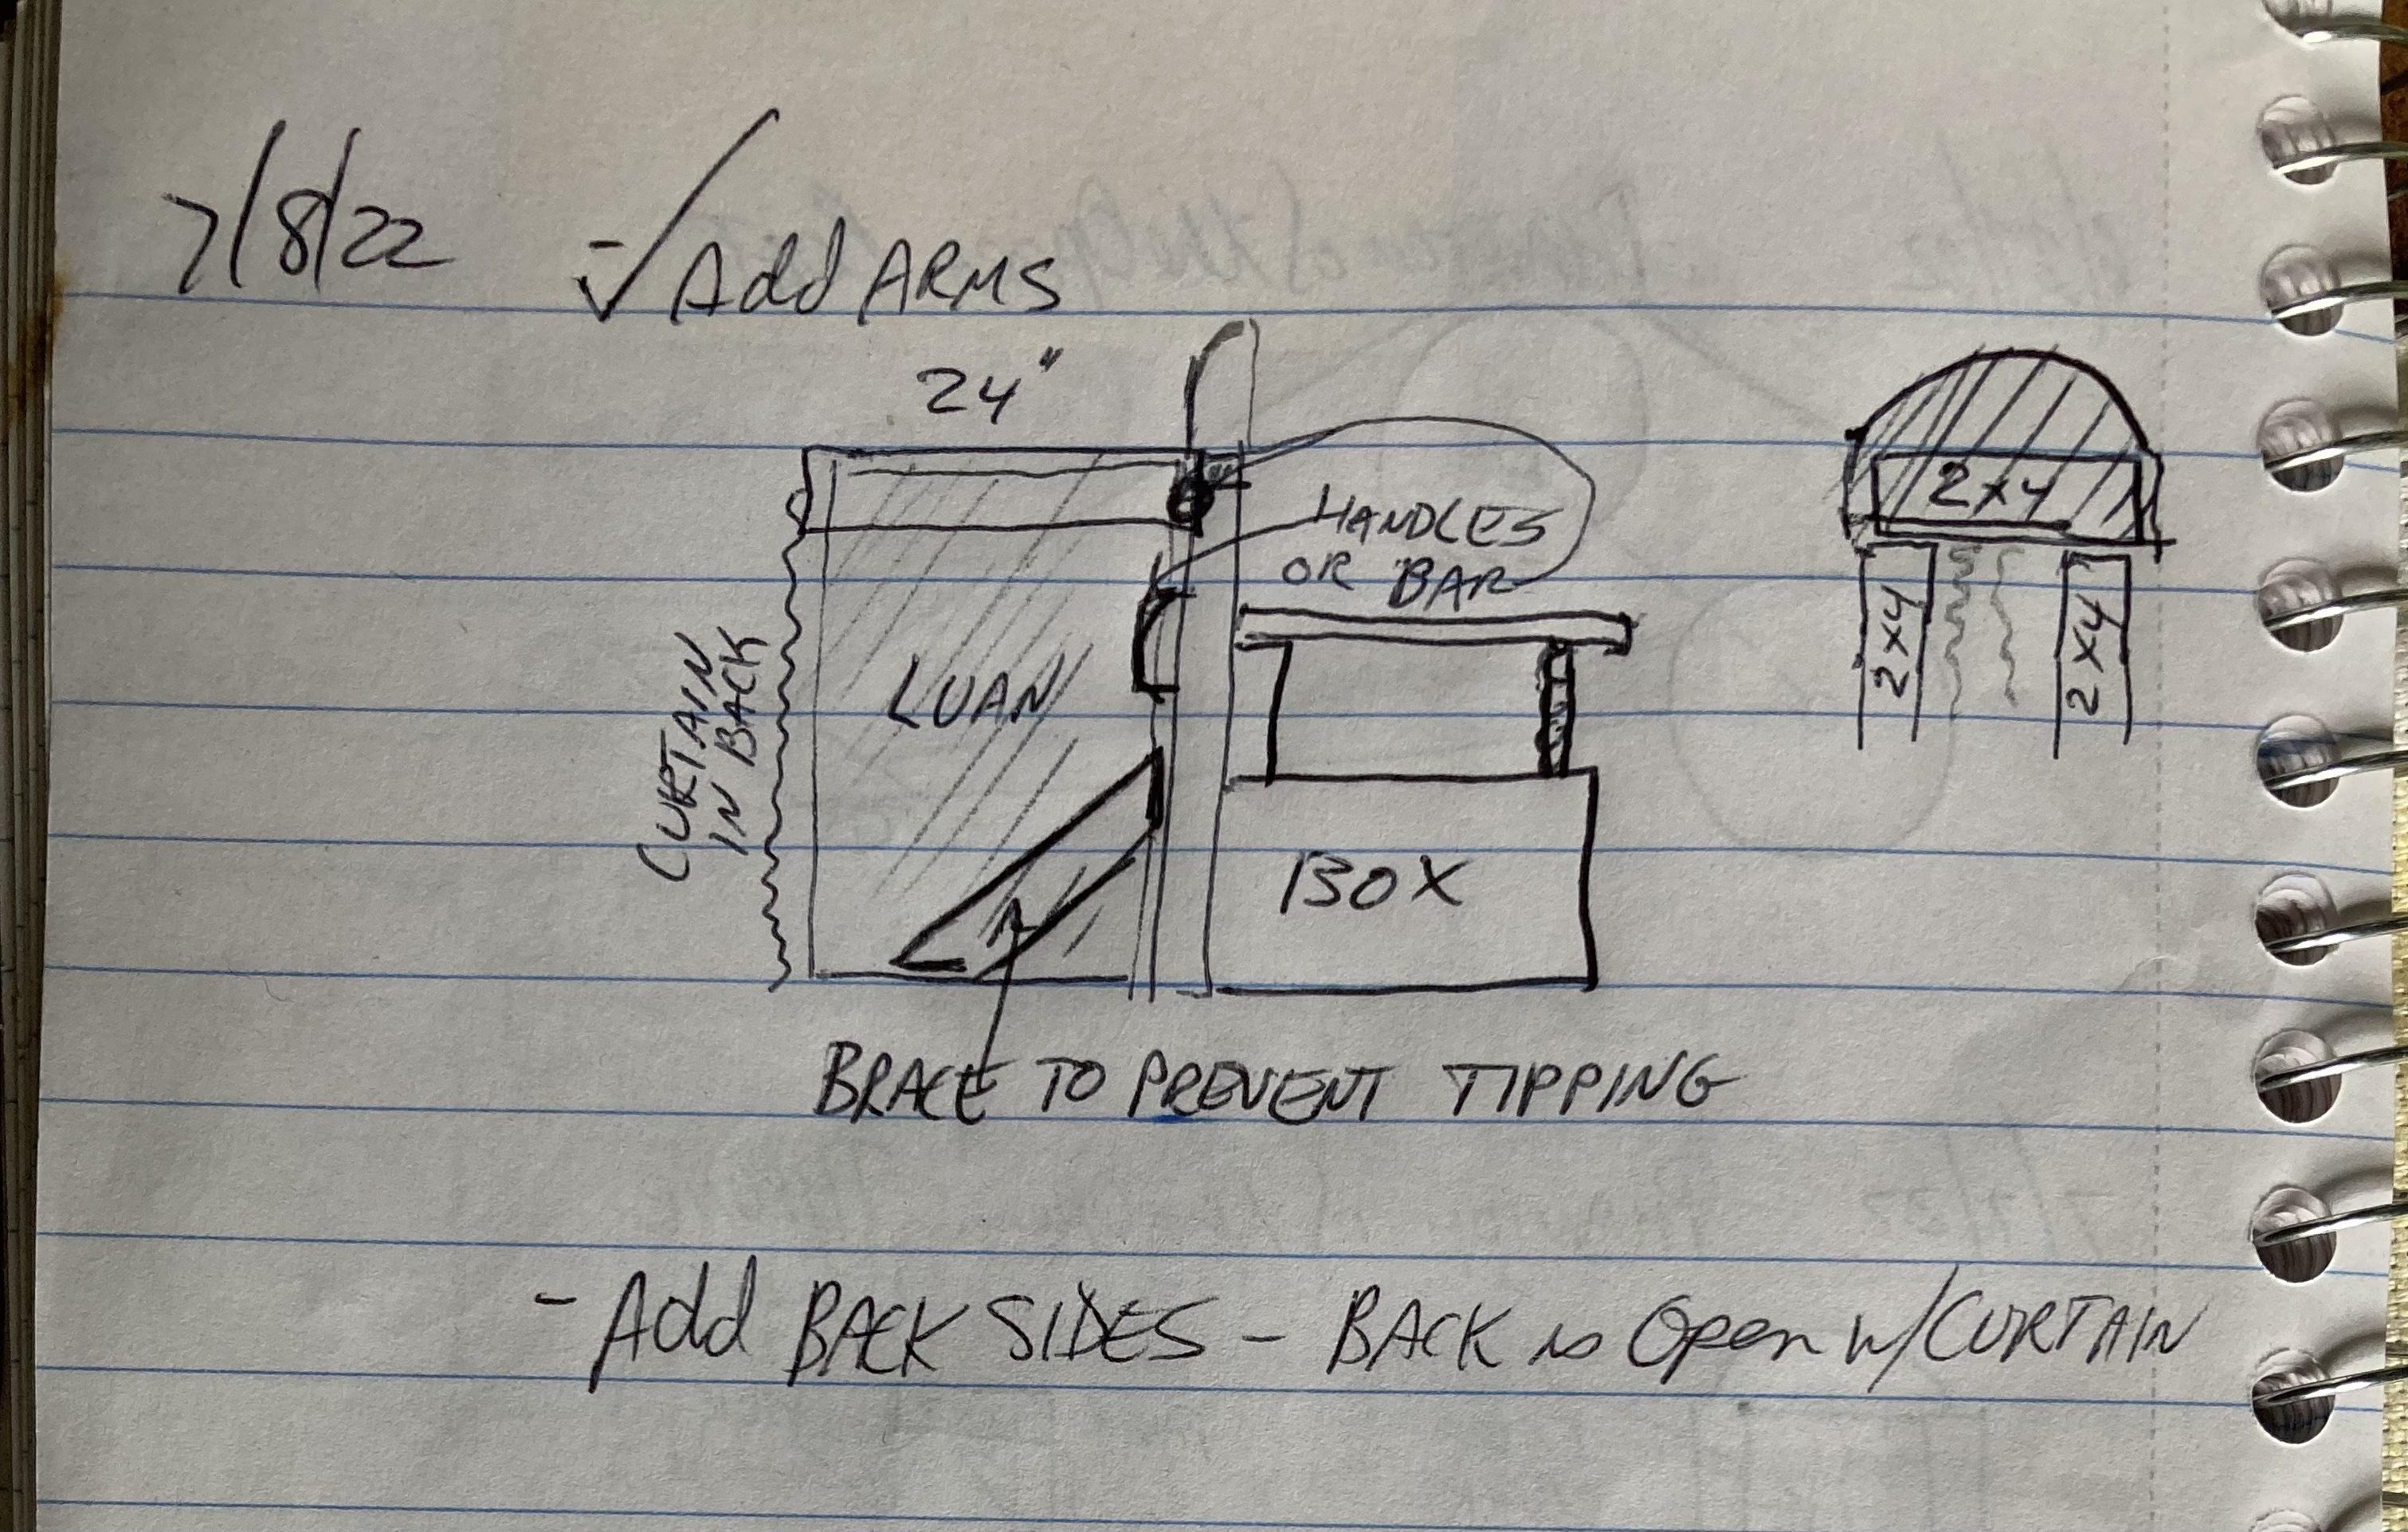 7/8/22 - ✓ Add ARMS
24"
HANDLES
OR BAR
2x4
2x4
2x4
LUAN
CURTAIN
IN BACK
BOX
BRACE TO PREVENT TIPPING
- Add BACK SIDES - BACK is Open w/CURTAIN